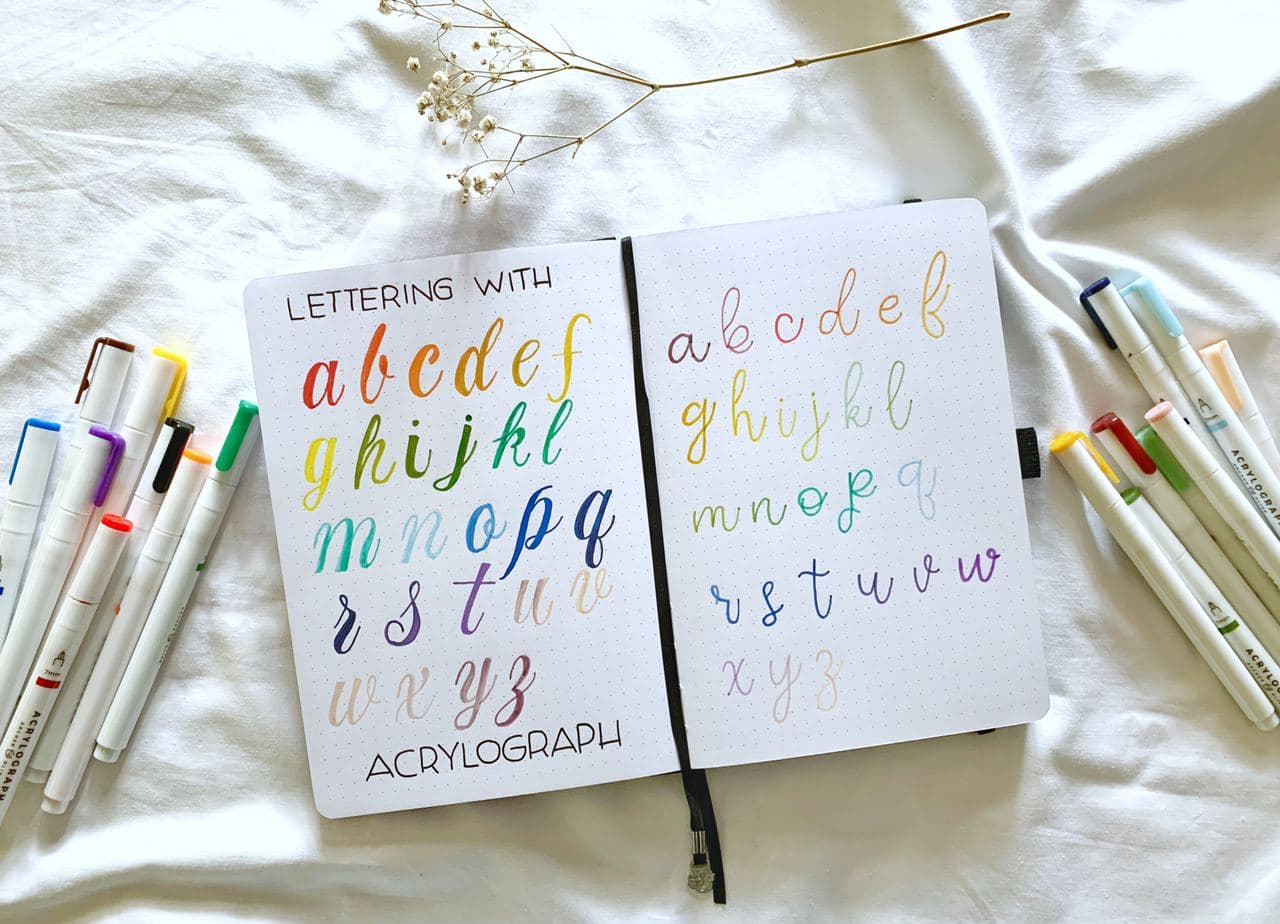 LETTERING WITH
a b c d e f
g h i j k l
m n o p q
r s t u v
w x y z
ACRYLOGRAPH
a b c d e f
g h i j k l
m n o p q
r s t u v w
x y z
ACRYLOGRAPH
ACRYLOGRA
ACRYLOGR